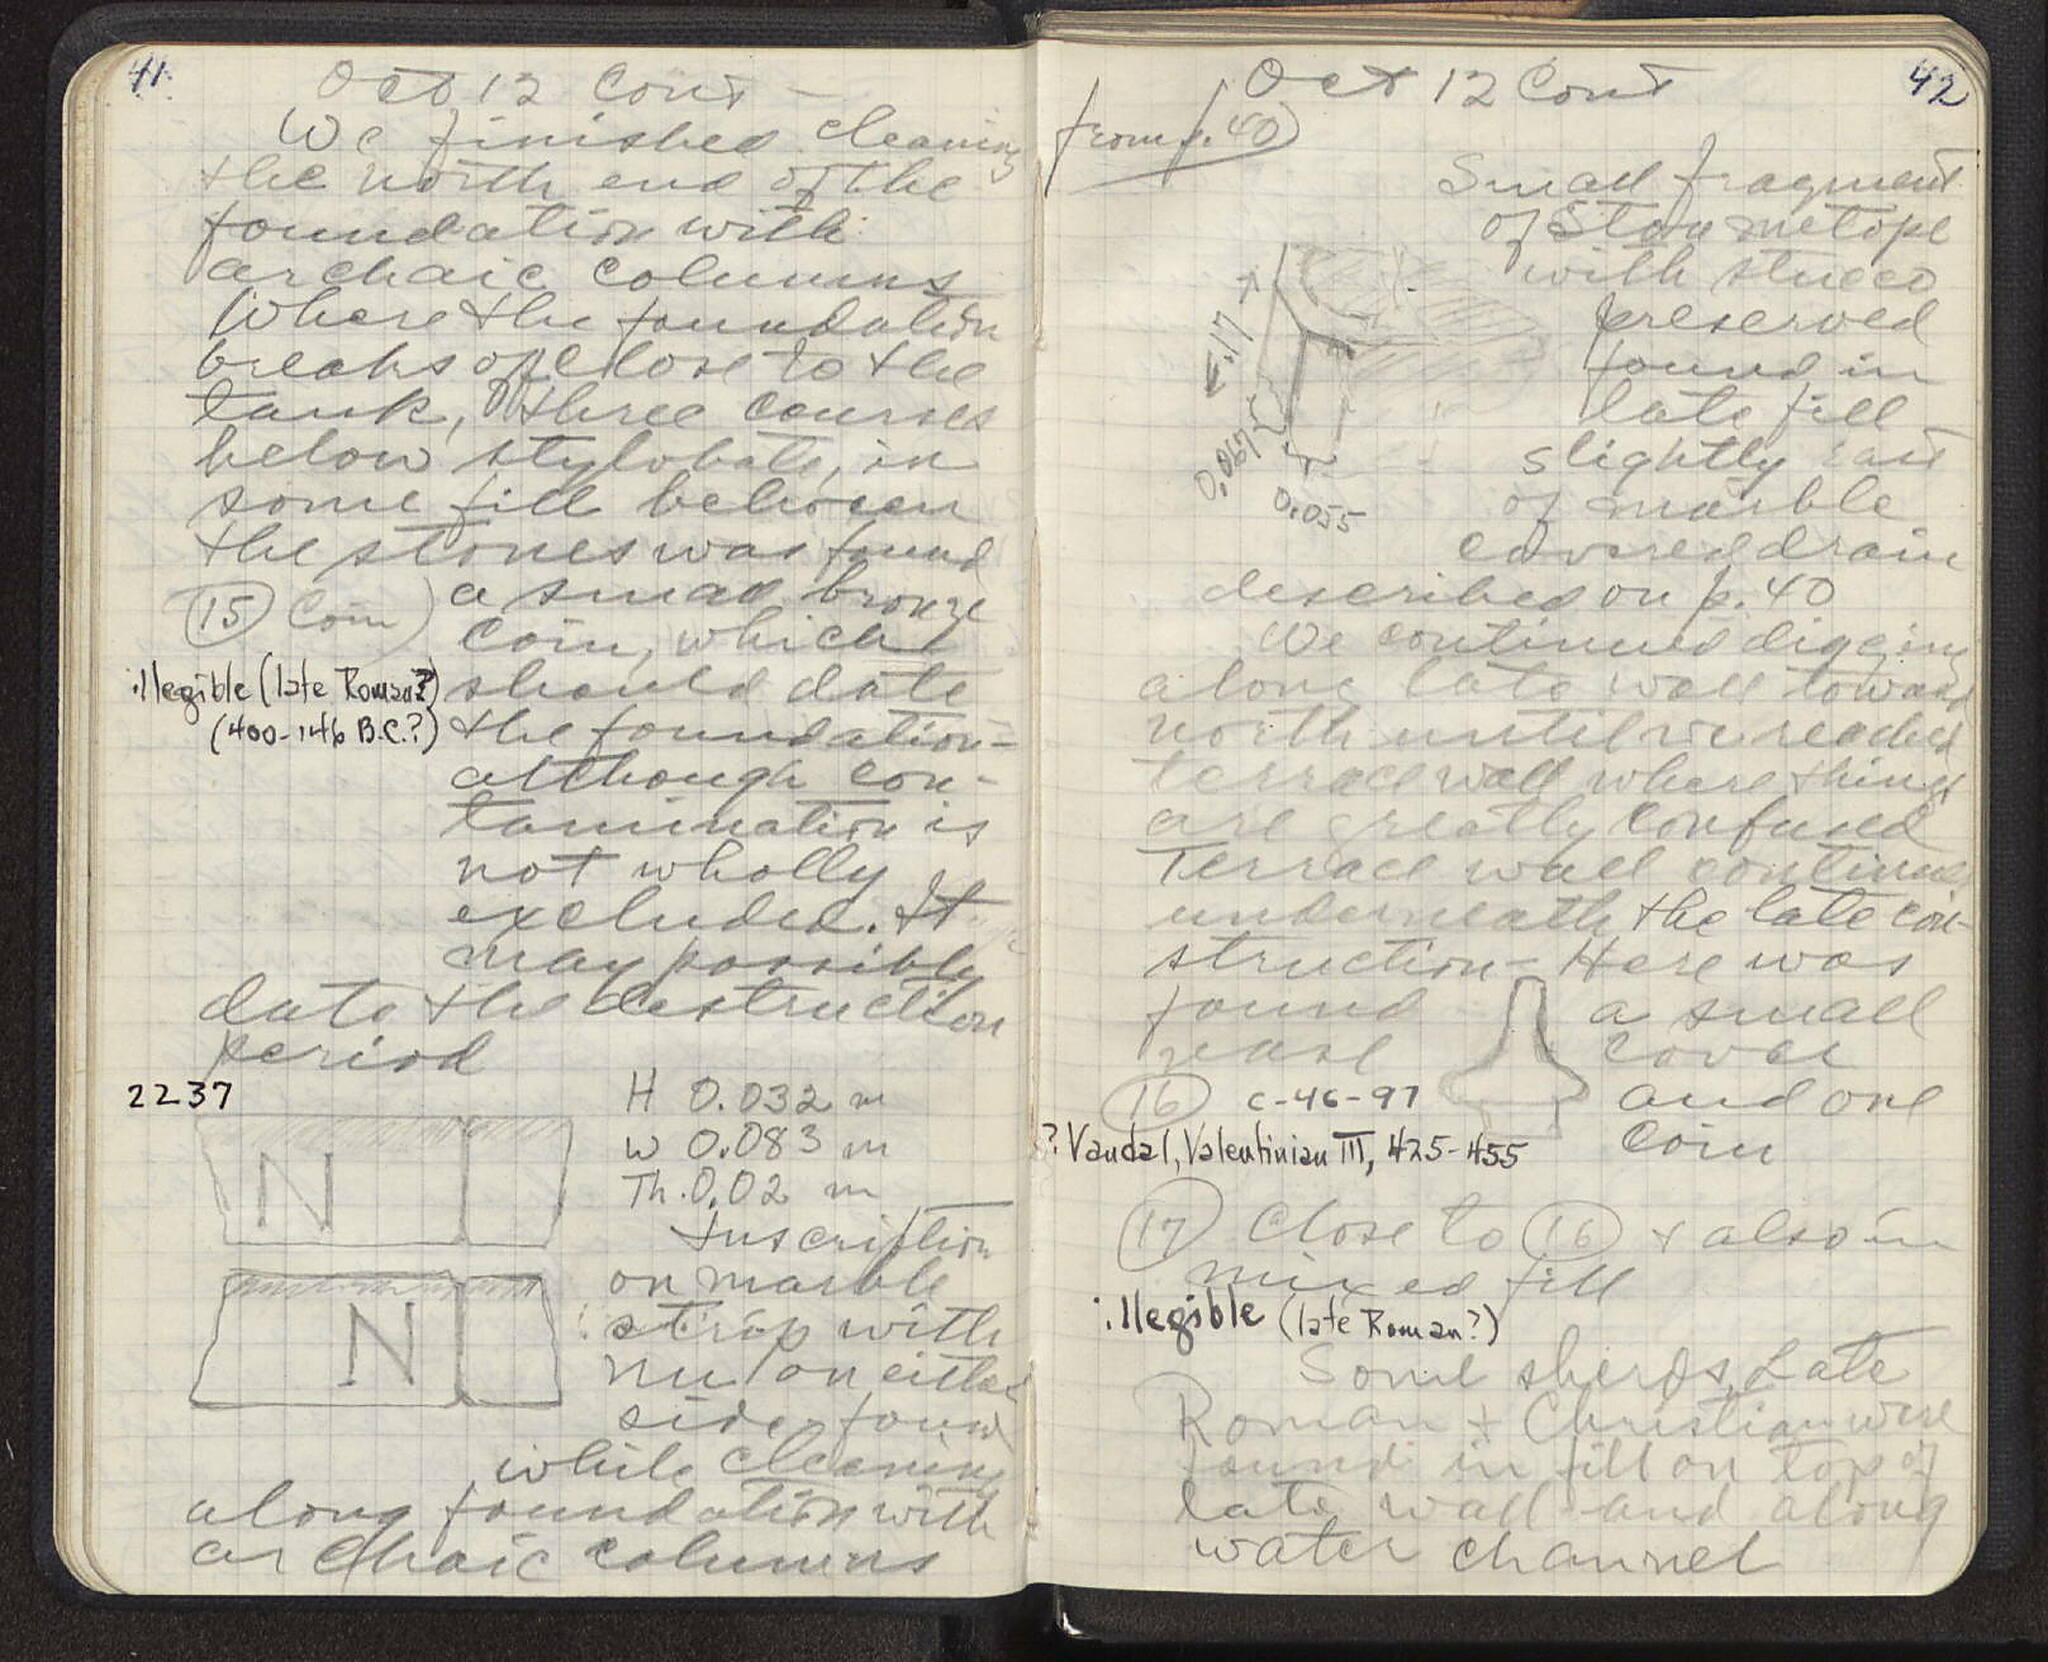 41
Oct 12 Cont –
We finished cleaning
the north end of the
foundation with
archaic columns
Where the foundation
breaks off close to the
tank, three courses
below stylobate, in
some fill between
the stones was found
15 Coin) a small bronze
coin, which
illegible (late Roman?) should date
(400-146 B.C.?) the foundation–
although con-
tamination is
not wholly
excluded. It
may possibly
date the destruction
period
2237
H 0.032 m
W 0.083 m
Th. 0.02 m
N
Inscription
on marble
strip with
N
nu on either
side found
while cleaning
along foundation with
archaic columns
42
Oct 12 Cont
from p. 40)
Small fragment
of Stou metope
with stucco
preserved
found in
late fill
slightly east
of marble
covered drain
described on p. 40
.17
0.067
0.055
We continued digging
along late wall toward
north until we reached
terrace wall where things
are greatly confused
Terrace wall continues
underneath the late con-
struction – Here was
found a small
cover
16 C-46-97 and one
coin
? Vandal, Valentinian III, 425-455
17 Close to 16 + also in
mixed fill
illegible (late Roman?)
Some sherds, Late
Roman + Christian were
found in fill on top of
late wall and along
water channel